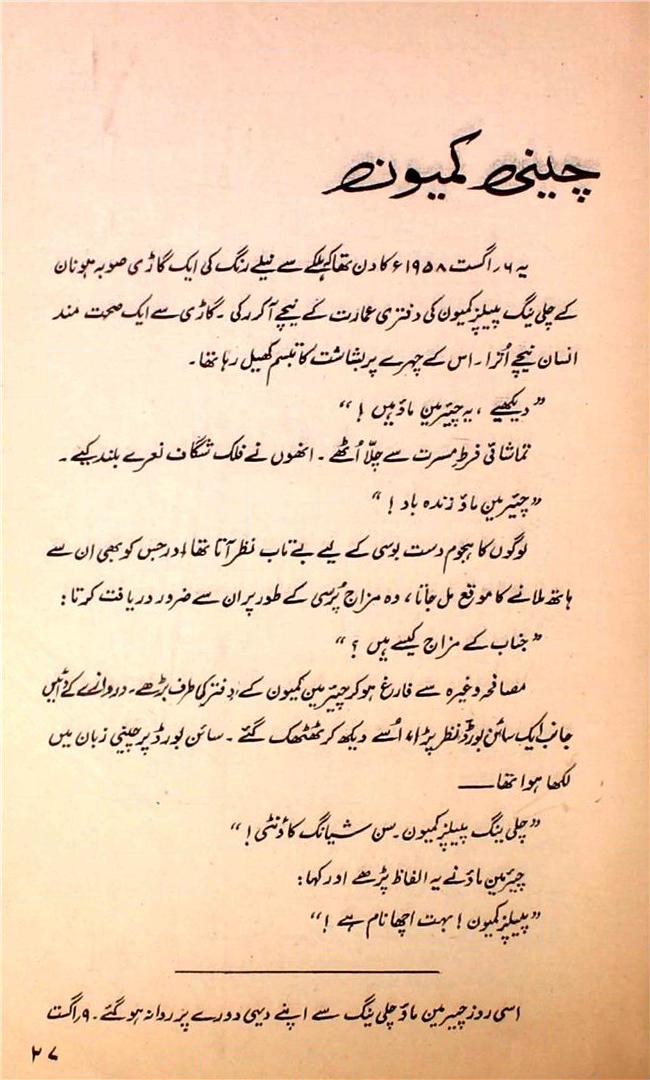 چینی کمیون
یہ ۶ ر اگست ۱۹۵۸ء کا دن تھا کہ ہلکے سے نیلے رنگ کی ایک گاڑی صوبہ ہونان
کے چلی ینگ پیپلز کمیون کی دفتری عمارت کے نیچے آ کر رکی ۔ گاڑی سے ایک صحت مند
انسان نیچے اُترا ۔ اس کے چہرے پر بشاشت کا تبسم کھیل رہا تھا ۔
” دیکھیے ، یہ چیئرمین ماؤ ہیں ! “
تماشائی فرطِ مسرت سے چلّا اُٹھے ۔ انھوں نے فلک شگاف نعرے بلند کیے ۔
” چیئرمین ماؤ زندہ باد ! “
لوگوں کا ہجوم دست بوسی کے لیے بے تاب نظر آتا تھا اور جس کو بھی ان سے
ہاتھ ملانے کا موقع مل جاتا ، وہ مزاج پُرسی کے طور پر ان سے ضرور دریافت کرتا :
” جناب کے مزاج کیسے ہیں ؟ “
مصافحہ وغیرہ سے فارغ ہو کر چیئرمین کمیون کے دفتر کی طرف بڑھے ۔ دروازے کے دائیں
جانب ایک سائن بورڈ نظر پڑا ، اُسے دیکھ کر ٹھٹھک گئے ۔ سائن بورڈ پر چینی زبان میں
لکھا ہوا تھا ——
” چلی ینگ پیپلز کمیون ۔ سن شیانگ کاؤنٹی ! “
چیئرمین ماؤ نے یہ الفاظ پڑھے اور کہا :
” پیپلز کمیون ! بہت اچھا نام ہے ! “
اسی روز چیئرمین ماؤ چلی ینگ سے اپنے دیہی دورے پر روانہ ہو گئے ۔ ۹ ر اگست
۲۷